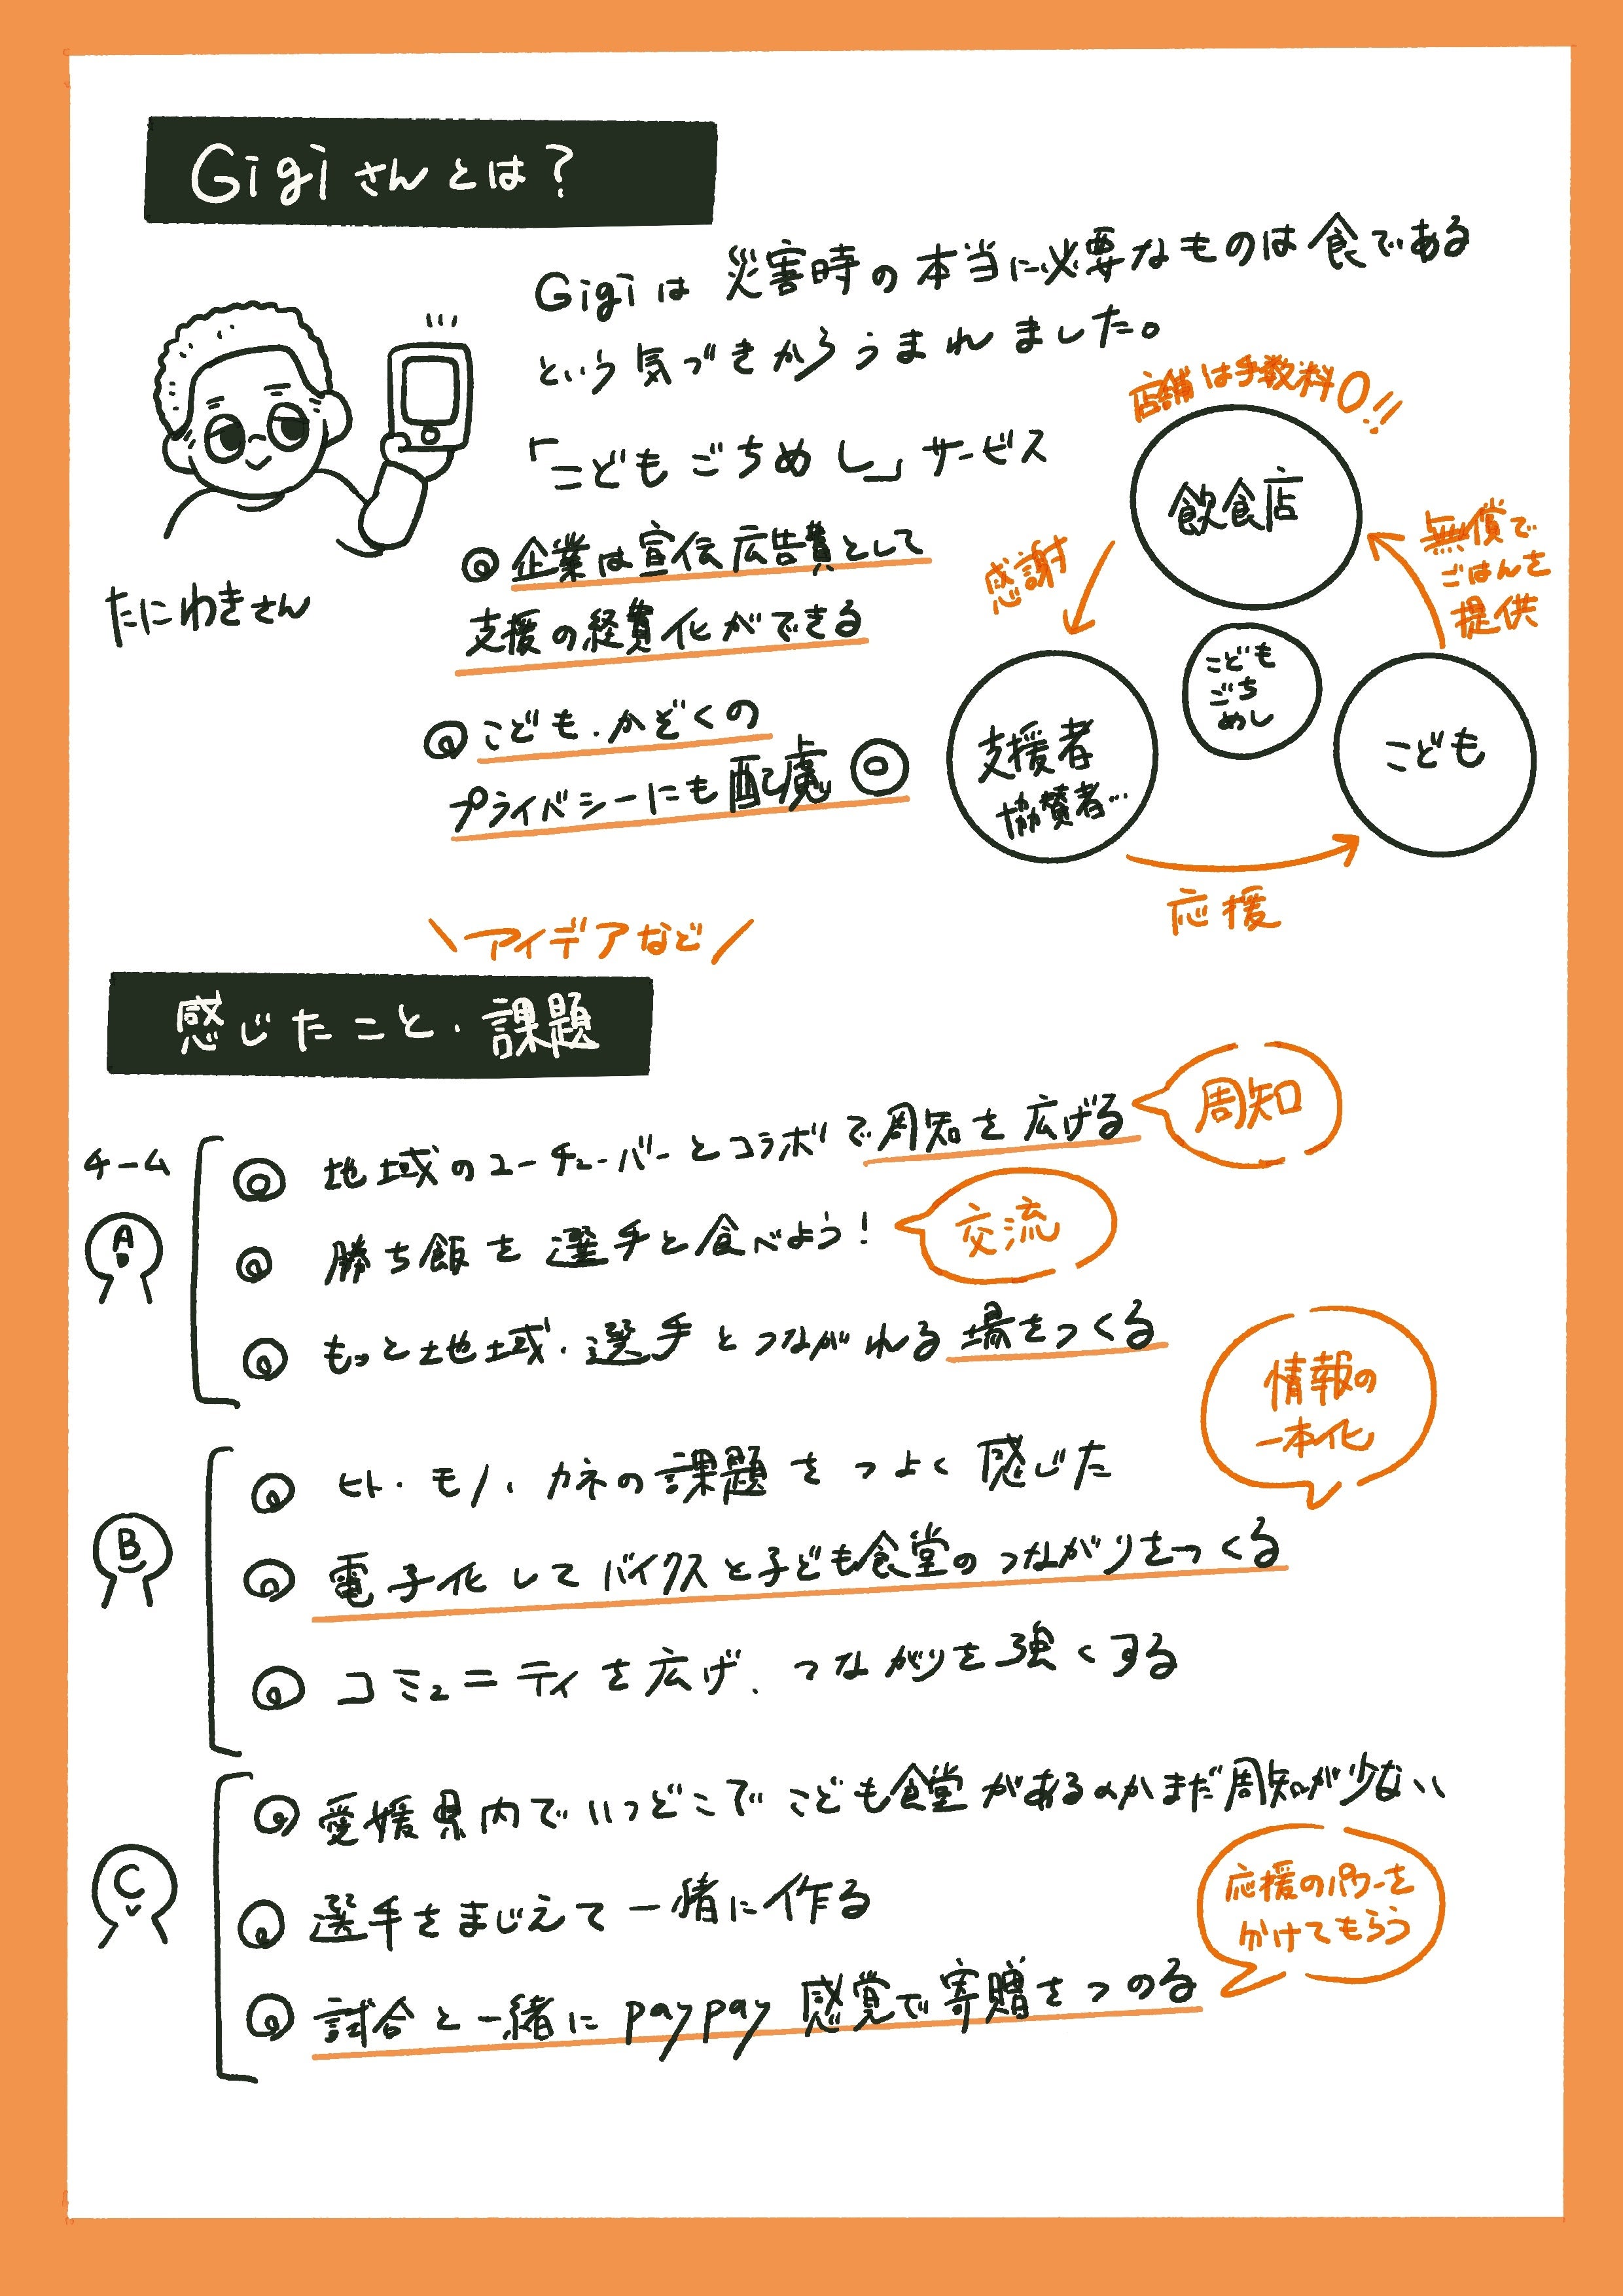 Gigiさんとは？
Gigiは災害時の本当に必要なものは食である
という気づきからうまれました。
「こどもごちめし」サービス
たにわきさん
企業は宣伝広告費として
支援の経費化ができる
こども・かぞくの
プライバシーにも配慮◎
店舗は手数料0!!
飲食店
感謝
無償で
ごはんを
提供
こども
ごち
めし
支援者
協賛者…
こども
応援
\アイデアなど/
感じたこと・課題
チーム
A
地域のユーチューバーとコラボで周知を広げる
周知
勝ち飯を選手と食べよう!
交流
もっと地域・選手とつながれる場をつくる
B
ヒト・モノ・カネの課題をつよく感じた
情報の
一本化
電子化してバイクスと子ども食堂のつながりをつくる
コミュニティを広げ、つながりを強くする
C
愛媛県内でいつどこでこども食堂があるのかまだ周知が少ない
選手をまじえて一緒に作る
応援のパワーを
かけてもらう
試合と一緒にpaypay感覚で寄贈をつのる